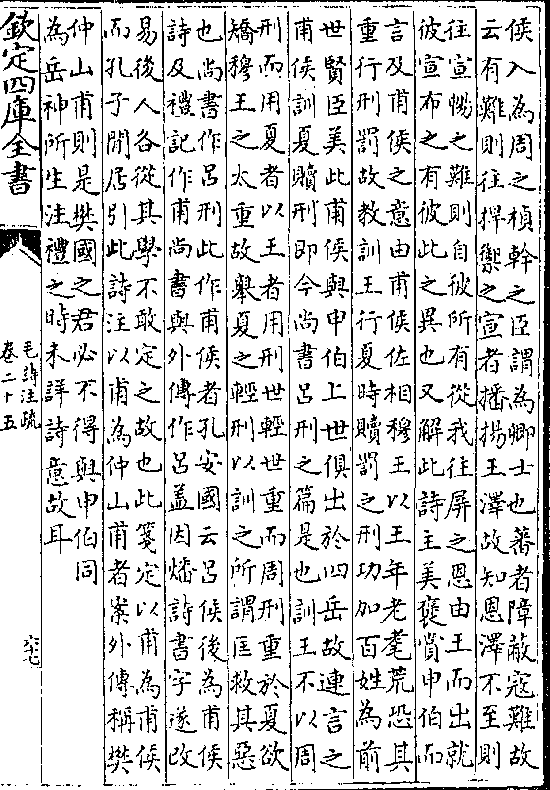 侯入為周之楨幹之臣謂為卿士也蕃者障蔽寇難故
云有難則往捍禦之宣者播揚王澤故知恩澤不至則
往宣暢之難則自彼所有從我往屏之恩由王而出就
彼宣布之有彼此之異也又解此詩主美褒賞申伯而
言及甫侯之意由甫侯佐相穆王以王年老耄荒恐其
重行刑罰故教訓王行夏時贖罰之刑功加百姓為前
世賢臣美此甫侯與申伯上世俱出於四岳故連言之
甫侯訓夏贖刑即今尚書呂刑之篇是也訓王不以周
刑而用夏者以王者用刑世輕世重而周刑重於夏欲
矯穆王之太重故舉夏之輕刑以訓之所謂匡救其惡
也尚書作呂刑此作甫侯者孔安國云呂侯後為甫侯
詩及禮記作甫尚書與外傳作呂蓋因燔詩書字遂改
易後人各從其學不敢定之故也此箋定以甫為甫侯
而孔子閒居引此詩注以甫為仲山甫者案外傳稱樊
仲山甫則是樊國之君必不得與申伯同
為岳神所生注禮之時未詳詩意故耳
欽定四庫全書
毛詩注疏
卷二十五
六七